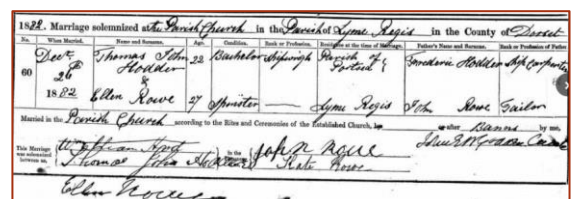 1882. Marriage solemnized at the Parish Church in the Parish of Lyme Regis in the County of Dorset
No. When Married. Name and Surname. Age. Condition. Rank or Profession. Residence at the time of Marriage. Father's Name and Surname. Rank or Profession of Father
60 Decr 26th 1882 Thomas John Hodder 22 Bachelor Shipwright Parish of Portsea Frederic Hodder Ship Carpenter
& Ellen Rowe 27 Spinster — Lyme Regis John Rowe Tailor
Married in the Parish Church according to the Rites and Ceremonies of the Established Church, by or after Banns by me,
This Marriage was solemnized between us, Thomas John Hodder in the John Rowe
Kate Rowe
Ellen Rowe